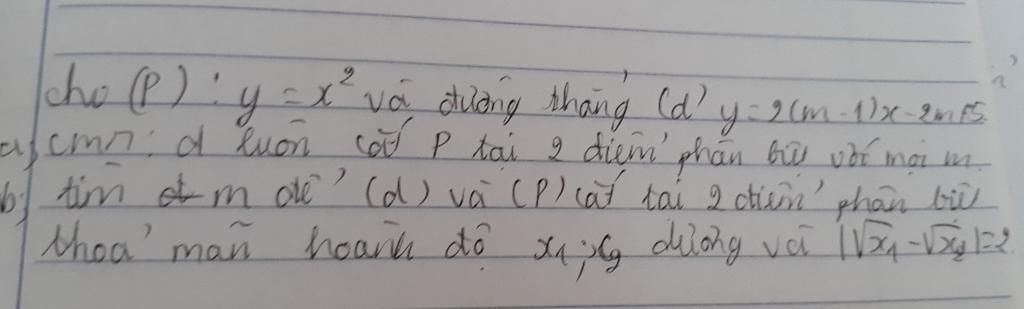 cho (P) : y = x² và đường thẳng (d) y = 2(m-1)x - 2m+5.
a, cmr: d luôn cắt P tại 2 điểm phân biệt với mọi m.
b, tìm m để (d) và (P) cắt tại 2 điểm phân biệt
thoả mãn hoành độ x₁; x₂ dương và |√x₁ - √x₂| = 2